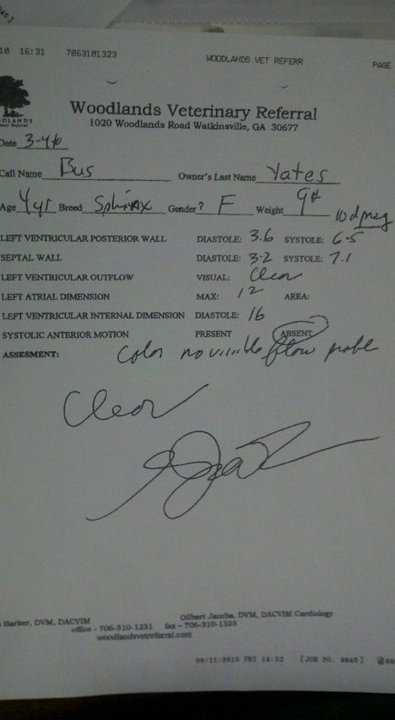 16:31 7063101323 WOODLANDS VET REFERR PAGE
Woodlands Veterinary Referral
1020 Woodlands Road Watkinsville, GA 30677
Date
Call Name Bus Owner's Last Name Yates
Age 4yr Breed Sphinx Gender? F Weight 9# 10 d preg
LEFT VENTRICULAR POSTERIOR WALL DIASTOLE: 3.6 SYSTOLE: 6.5
SEPTAL WALL DIASTOLE: 3.2 SYSTOLE: 7.1
LEFT VENTRICULAR OUTFLOW VISUAL: Clear
LEFT ATRIAL DIMENSION MAX: 12 AREA:
LEFT VENTRICULAR INTERNAL DIMENSION DIASTOLE: 16
SYSTOLIC ANTERIOR MOTION PRESENT ABSENT
ASSESMENT: Color no visible flow prob
Clear
Barker, DVM, DACVIM Gilbert Jacobs, DVM, DACVIM Cardiology
office - 706-310-1231 fax - 706-310-1323
woodlandsvetreferral.com
2010 FRI 14:32 [JOB NO.